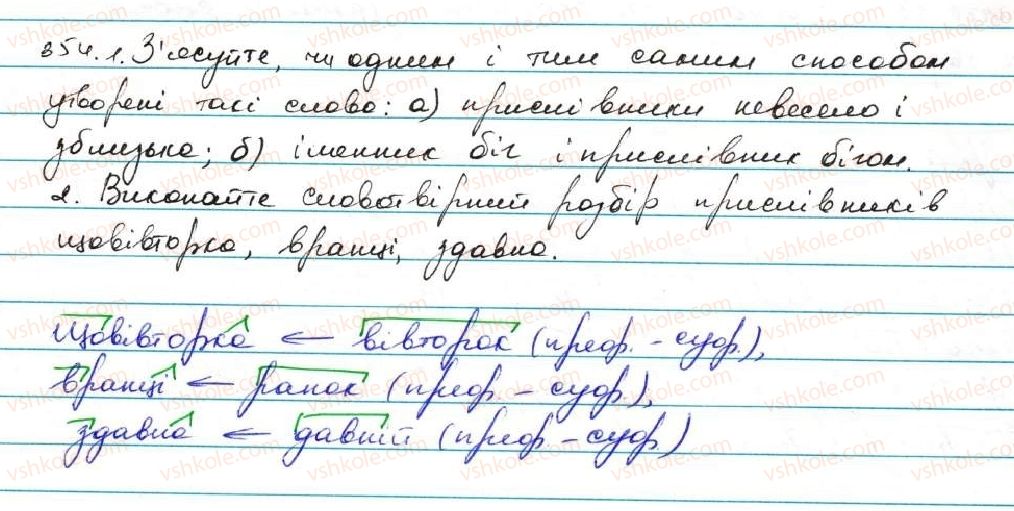 354. 1. З'ясуйте, чи одним і тим самим способом
утворені такі слово: а) прислівники невесело і
зблизька; б) іменник біг і прислівник бігом.
2. Виконайте словотвірний розбір прислівників
щовівторка, вранці, здавна.
щовівторка ← вівторок (преф. - суф.),
вранці ← ранок (преф. - суф.),
здавна ← давній (преф. - суф.)